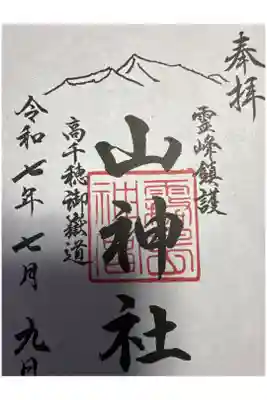 奉拝
霊峰鎮護
山神社
高千穂御嶽道
令和七年七月九日